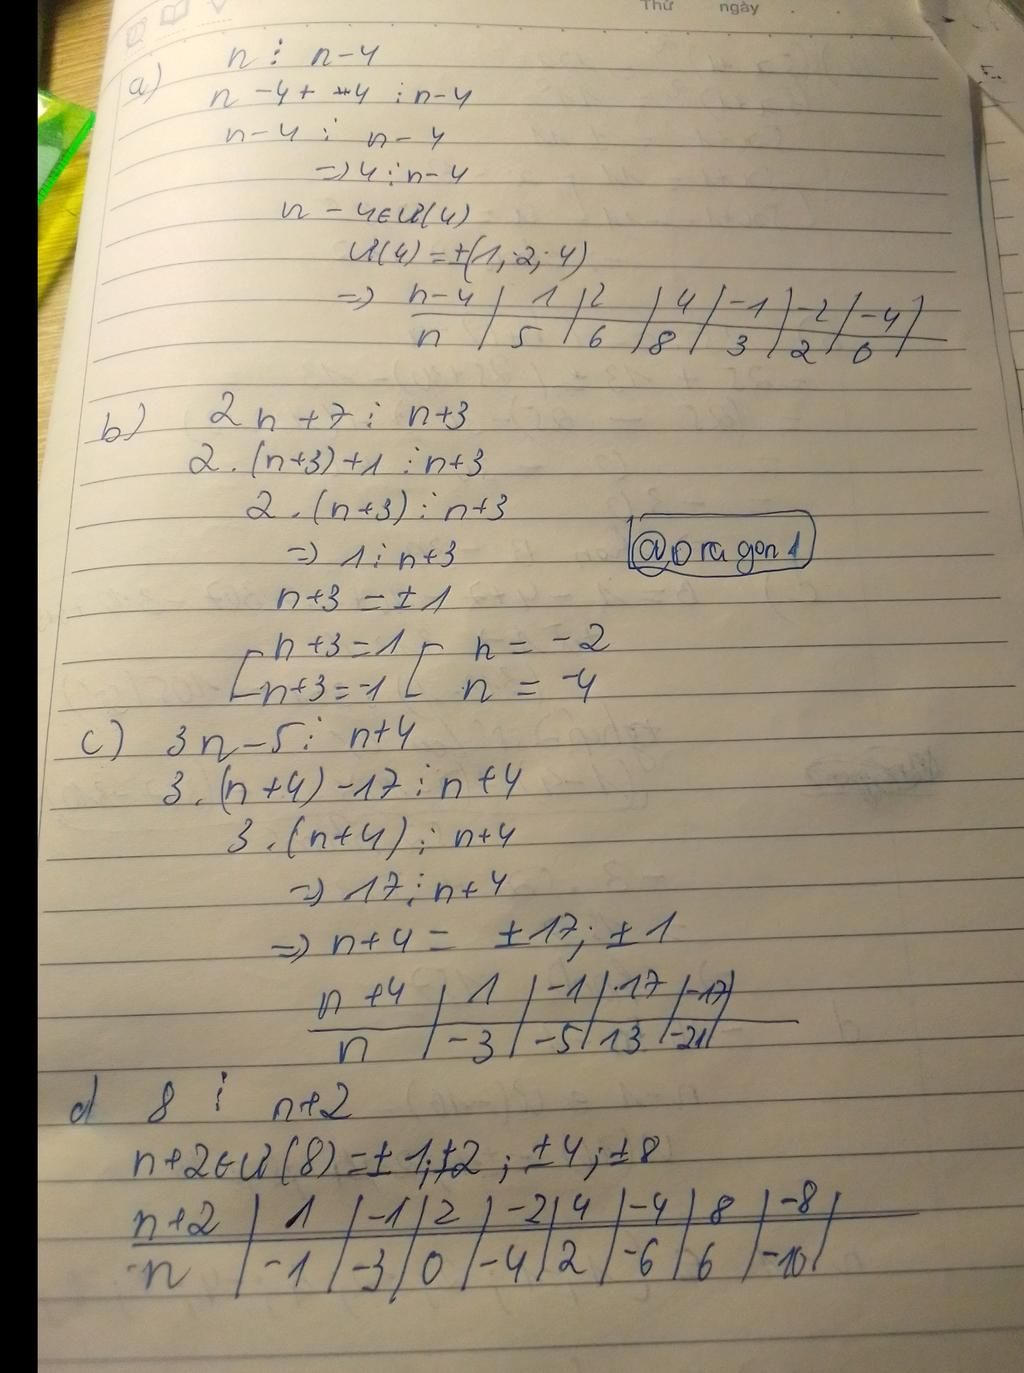 Thứ ngày
a) n ⋮ n-4
n -4 + 4 ⋮ n-4
n-4 ⋮ n-4
=> 4 ⋮ n-4
n - 4 ∈ Ư(4)
Ư(4) = ±(1; 2; 4)
=> n-4 | 1 | 2 | 4 | -1 | -2 | -4 |
n | 5 | 6 | 8 | 3 | 2 | 0 |
b) 2n +7 ⋮ n+3
2.(n+3)+1 ⋮ n+3
2.(n+3) ⋮ n+3
=> 1 ⋮ n+3
@Dragon1
n+3 = ±1
[ n+3=1 [ n = -2
[ n+3=-1 [ n = -4
c) 3n-5 ⋮ n+4
3.(n+4)-17 ⋮ n+4
3.(n+4) ⋮ n+4
=> 17 ⋮ n+4
=> n+4 = ±17; ±1
n+4 | 1 | -1 | 17 | -17 |
n | -3 | -5 | 13 | -21 |
d 8 ⋮ n+2
n+2 ∈ Ư(8) = ±1; ±2; ±4; ±8
n+2 | 1 | -1 | 2 | -2 | 4 | -4 | 8 | -8 |
n | -1 | -3 | 0 | -4 | 2 | -6 | 6 | -10 |